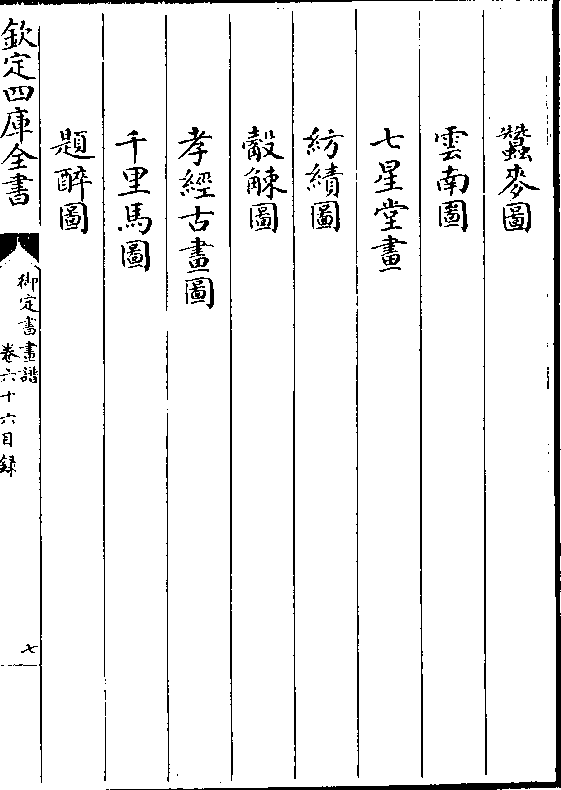 蠶麥圖
雲南圖
七星堂畫
紡績圖
觳觫圖
孝經古畫圖
千里馬圖
題醉圖
欽定四庫全書
御定書畫譜
卷六十六目録
七